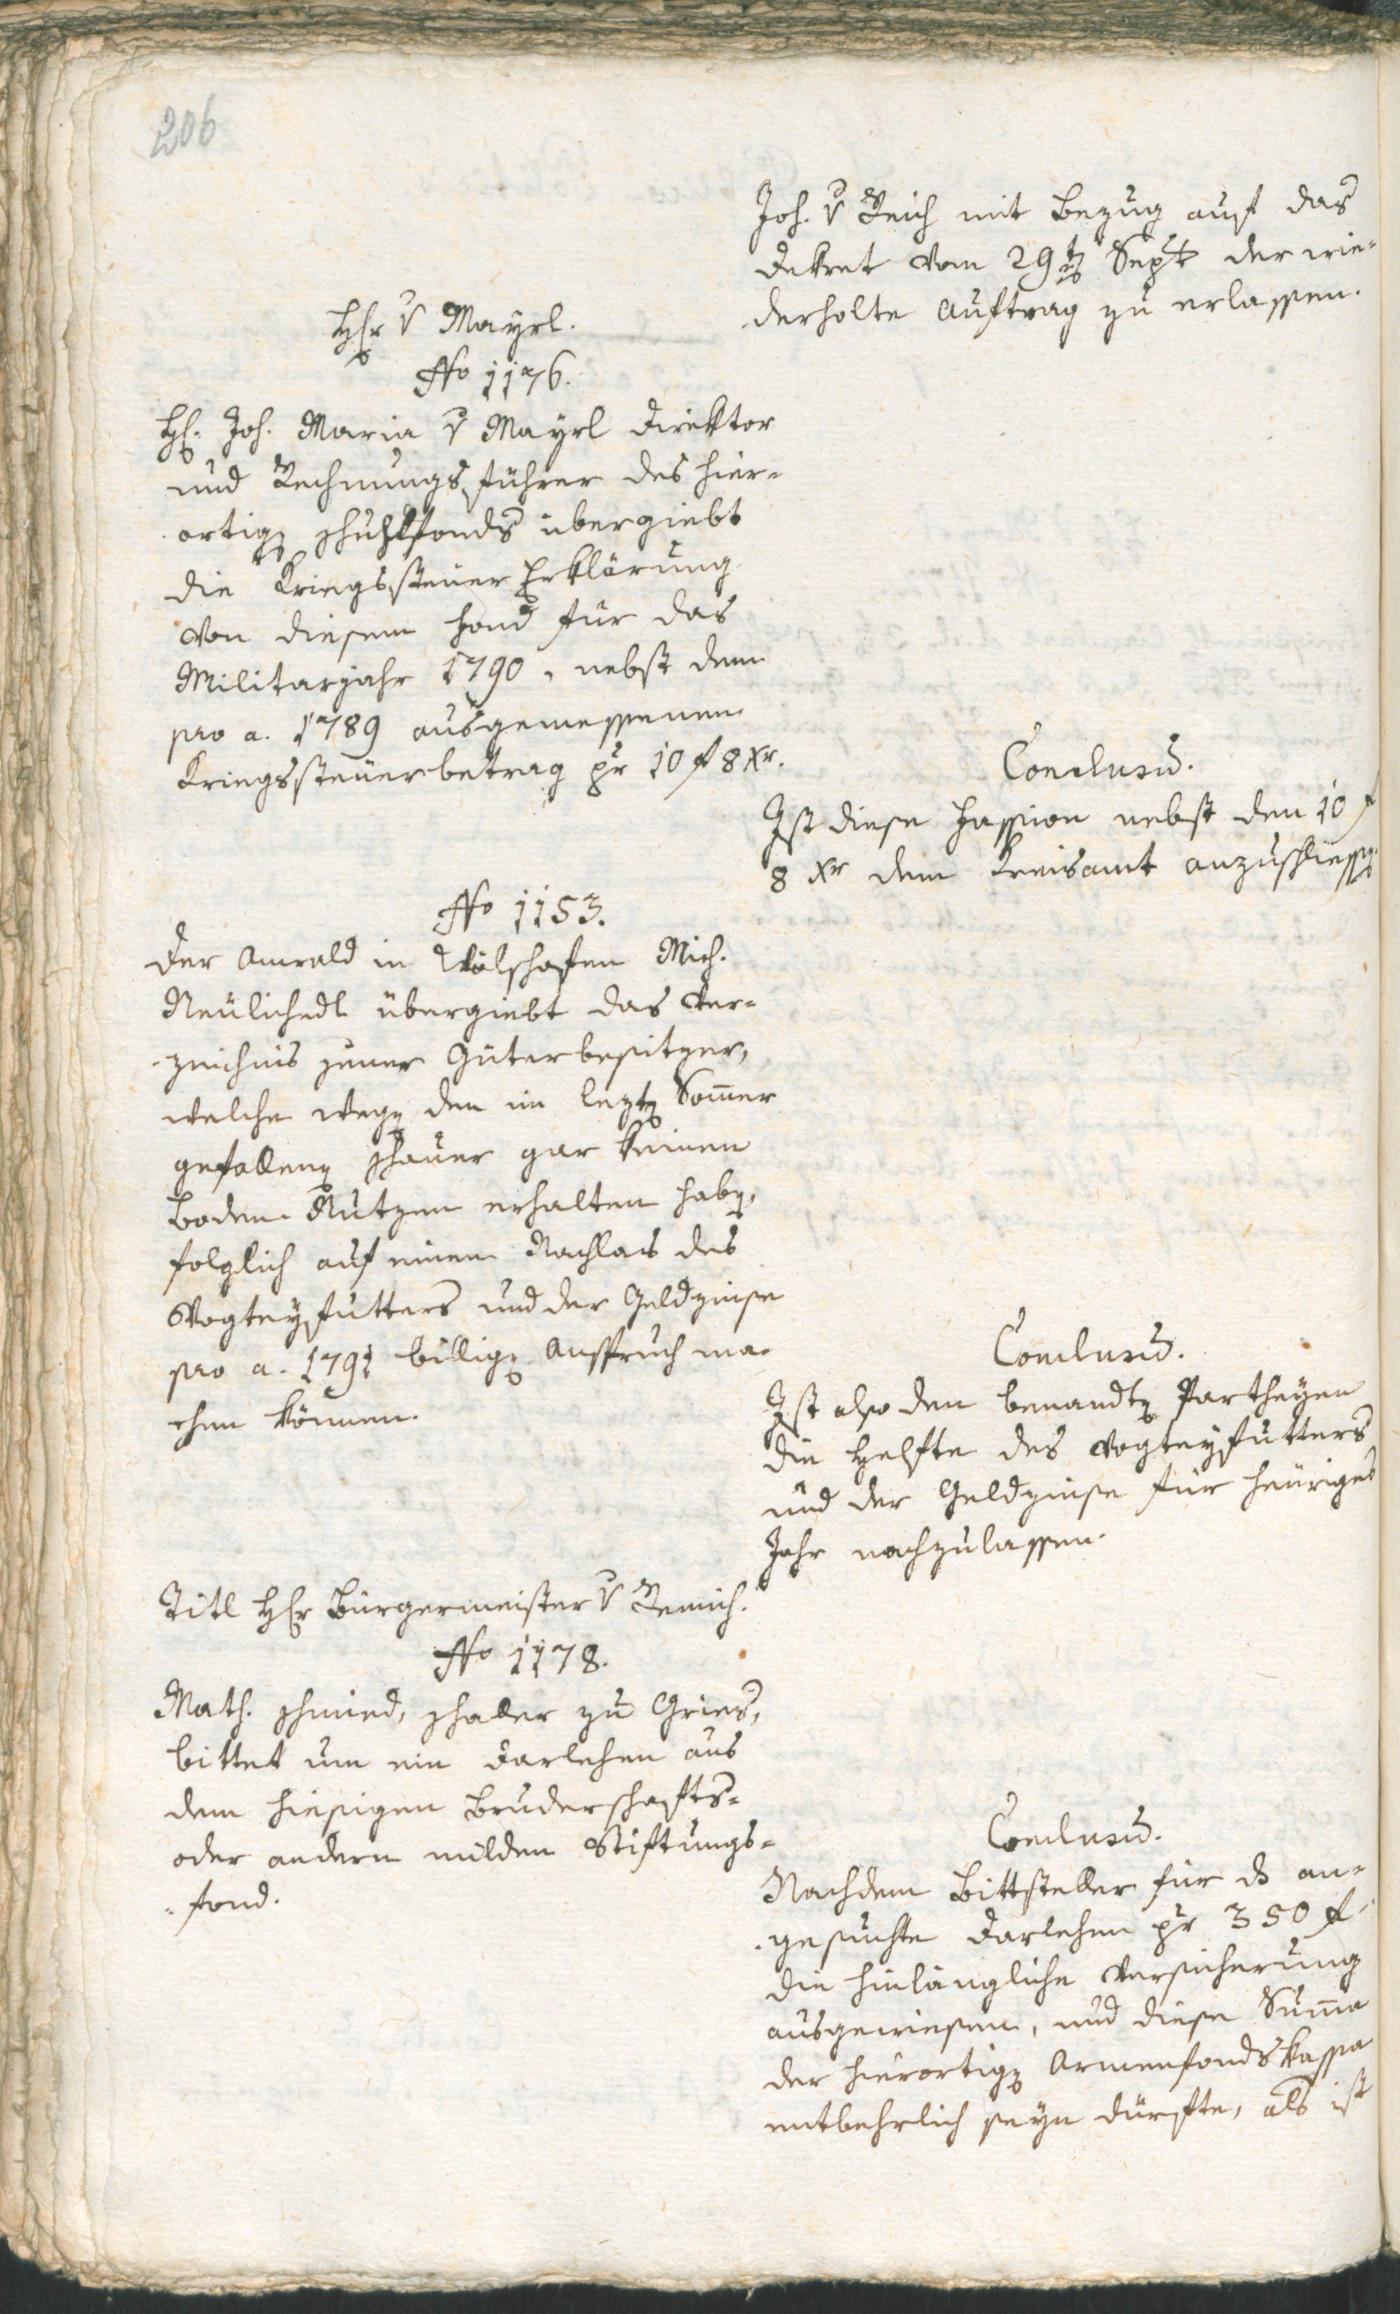 206
Joh. v Reich mit Bezug auf das
Dekret vom 29ten Sept der wie-
derholte Auftrag zu erlassen.
Hr v Mayrl.
No 1176.
H. Joh. Maria v Mayrl Direktor
und Rechnungsführer des hier-
ortigen Schulfonds übergiebt
die Kriegssteuer Erklärung
von diesem Fond für das
Militarjahr 1790, nebst dem
pro a. 1789 ausgemessenen
Kriegssteuerbetrag pr 10 f 8 Xr.
Conclusū.
Ist diese Fassion nebst den 10 f
8 Xr dem Kreisamt anzuschliessen.
No 1153.
Der Anwald in Wölschofen Mich.
Neulichedl übergiebt das Ver-
zeichnis jener Güterbesitzer,
welche wegen den im lezten Som̄er
gefallenen Schauer gar keinen
Boden Nutzen erhalten haben,
folglich auf einen Nachlas des
Vogteyfutters und der Geldzinse
pro a. 1791 billigen Anspruch ma-
chen können.
Conclusū.
Ist also den benandten Partheyen
die Helfte des Vogteyfutters
und der Geldzinse für heuriges
Jahr nachzulassen.
Titl Hr Bürgermeister v Remich.
No 1178.
Math. Schmied, Schaller zu Gries,
bittet um ein Darlehen aus
dem hiesigen Bruderschafts-
oder andern milden Stiftungs-
fond.
Conclusū.
Nachdem Bittsteller für ds an-
gesuchte Darlehen pr 350 f
die hinlängliche Versicherung
ausgewiesen, und diese Sum̄a
der hierortigen Armenfondskassa
entbehrlich seyn dürfte, als ist